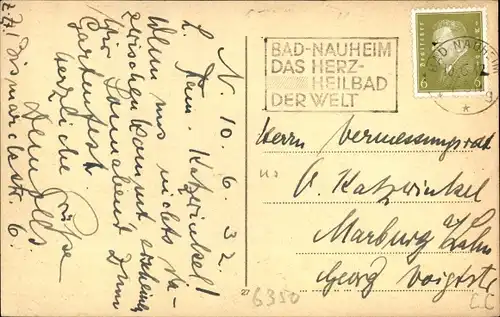 N. 10. 6. 32.
L. Fam. Katzwinkel!
Wenn uns nichts da-
zwischen kommt erscheinen
wir Sonnabend zum
Gartenfest.
Herzliche Grüße
z. Zt. Bismarckstr. 6.
BAD-NAUHEIM
DAS HERZ-
HEILBAD
DER WELT
BAD NAUHEIM
6
Herrn Vermessungsrat
Katzwinkel
Marburg Lahn
Georg Voigtstr
6350